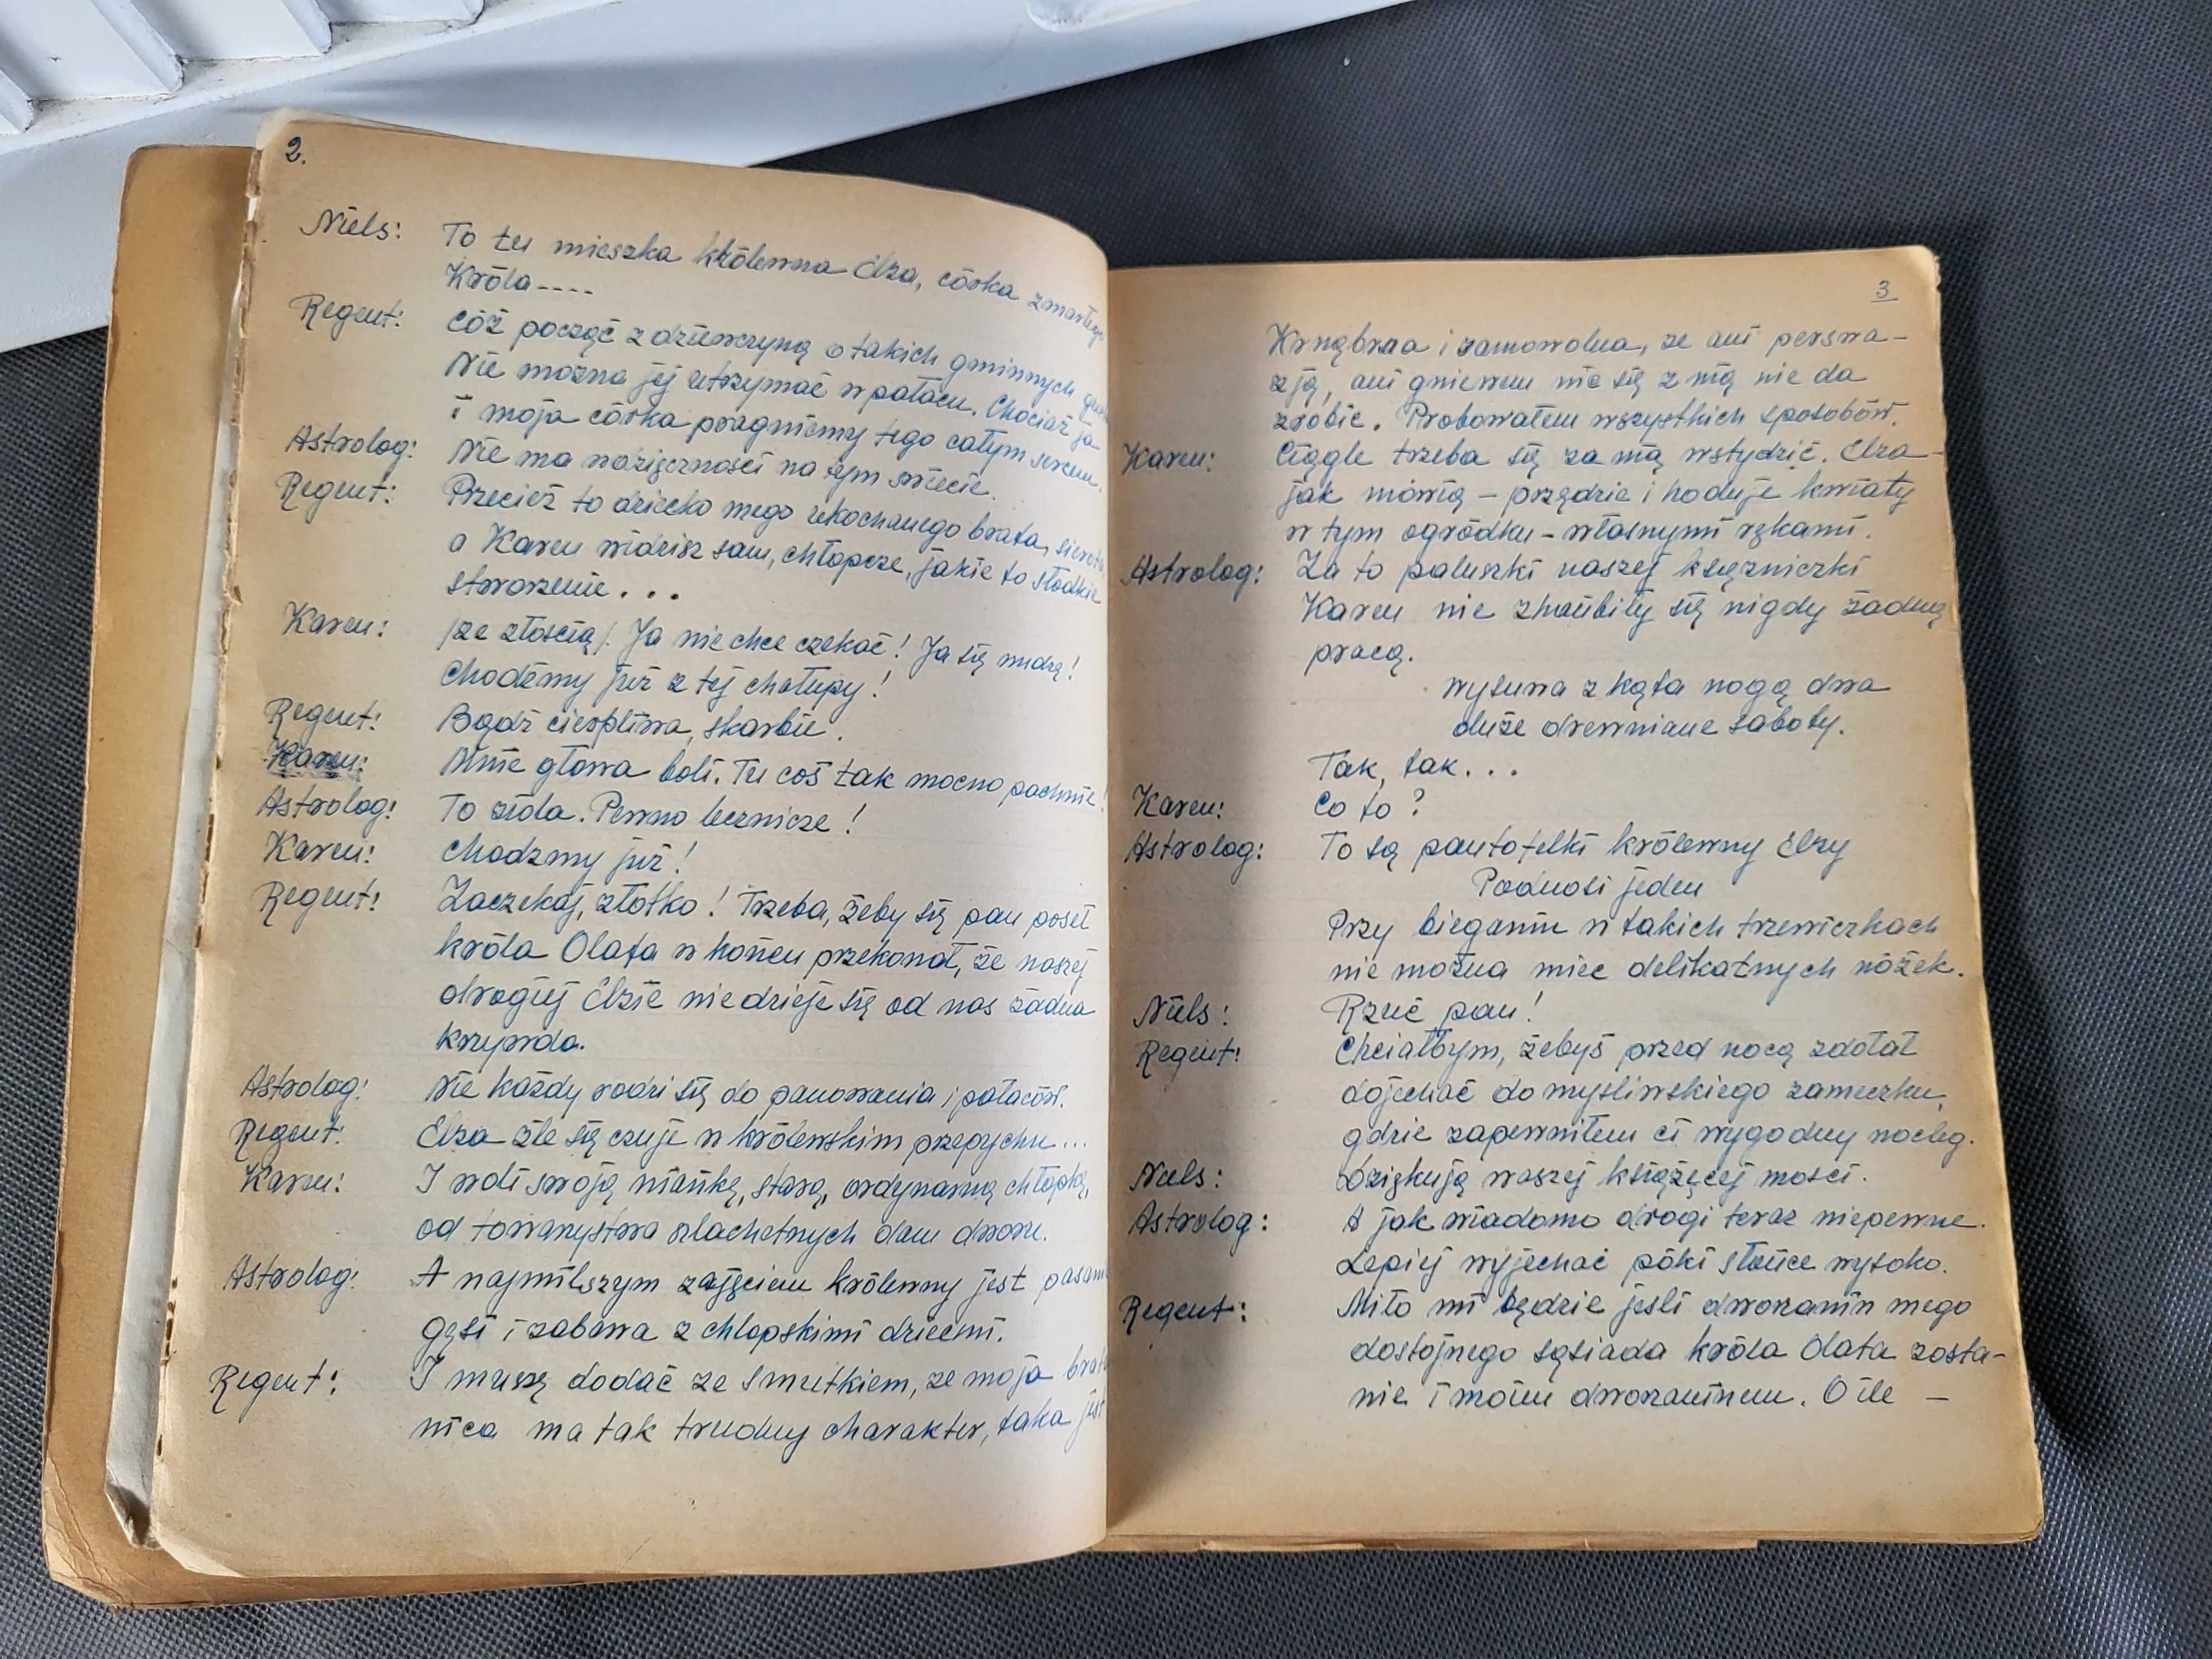 2.
Niels: To tu mieszka królewna Elza, córka zmarłego
Króla----
Regent: Cóż począć z dziewczyną o takich gminnych
Nie można jej utrzymać w pałacu. Chociaż ja
i moja córka pragniemy tego całym sercem.
Astrolog: Nie ma wdzięczności na tym świecie.
Regent: Przecież to dziecko mego ukochanego brata, sierota
a Karen widzisz sam, chłopcze, jakie to słodkie
stworzenie...
Karen: /ze złością/. Ja nie chcę czekać! Ja się nudzę!
Chodźmy już z tej chałupy!
Regent: Bądź cierpliwa, skarbie.
Karen: Mnie głowa boli. Tu coś tak mocno pachnie!
Astrolog: To zioła. Pewno lecznicze!
Karen: Chodzmy już!
Regent: Zaczekaj, złotko! Trzeba, żeby się pan poseł
króla Olafa w końcu przekonał, że naszej
drogiej Elzie nie dzieje się od nas żadna
krzywda.
Astrolog: Nie każdy rodzi się do panowania i pałaców.
Regent: Elza źle się czuje w królewskim przepychu...
Karen: I woli swoją niańkę, starą, ordynarną chłopkę,
od towarzystwa szlachetnych dam dworu.
Astrolog: A najmilszym zajęciem królewny jest pasanie
gęsi i zabawa z chlopskimi dziećmi.
Regent: I muszę dodać ze smutkiem, że moja brata
nica ma tak trudny charakter, taka jest
3
Krnąbrna i samowolna, że ani perswa-
zją, ani gniewem nic się z nią nie da
zrobić. Probowałem wszystkich sposobów.
Karen: Ciągle trzeba się za nią wstydzić. Elza-
jak mówią - przędzie i hoduje kwiaty
w tym ogródku - własnymi rękami.
Astrolog: Za to paluszki naszej księżniczki
Karen nie zhańbiły się nigdy żadną
pracą.
wysuwa z kąta nogą dwa
duże drewniane saboty.
Tak, tak...
Karen: Co to?
Astrolog: To są pantofelki królewny Elzy
Podnosi jeden
Przy bieganiu w takich trzewiczkach
nie można mieć delikatnych nóżek.
Niels: Rzuć pan!
Regent: Chciałbym, żebyś przed nocą zdołał
dojechać do mysliwskiego zameczku,
gdzie zapewniłem ci wygodny nocleg.
Niels: Dziękuję waszej książęcej mości.
Astrolog: A jak wiadomo drogi teraz niepewne.
Lepiej wyjechać póki słońce wysoko.
Regent: Miło mi będzie jeśli dworzanin mego
dostojnego sąsiada króla Olafa zosta-
nie i moim dworzaninem. O ile -